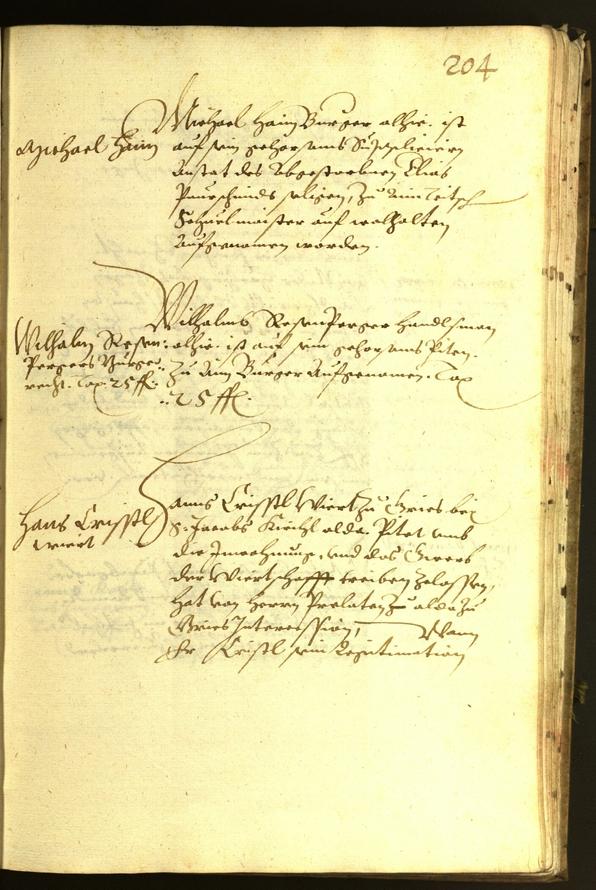 204
Michael Hain
Michael Hain Burger alhie. ist
auf sein gehorsams Suppliciern
anstat des abgestorbnen Elias
Paurschmids seligen, zu ainem Teitsch
Schuelmaister auf wolhalten
aufgenomen worden.
Wilhalm Rosen:
Pergers Burger:
recht. Tax 25 ff:
Wilhalmb RosenPerger Handlsman
alhie. ist auf sein gehorsams Piten.
zu aim Burger aufgenomen. Tax
25 ff:
Hans Cristl
wiert
Hanns Cristl Wiert zu Gries bei
S: Jacobs Kirchl alda. Pitet umb
die Inwohnung, und das Gwerb
der Wiertschafft treiben zelassen,
hat von Herrn Prelaten zu alda zu
Gries Intercession, Wann
Er Cristl sein Legitimation